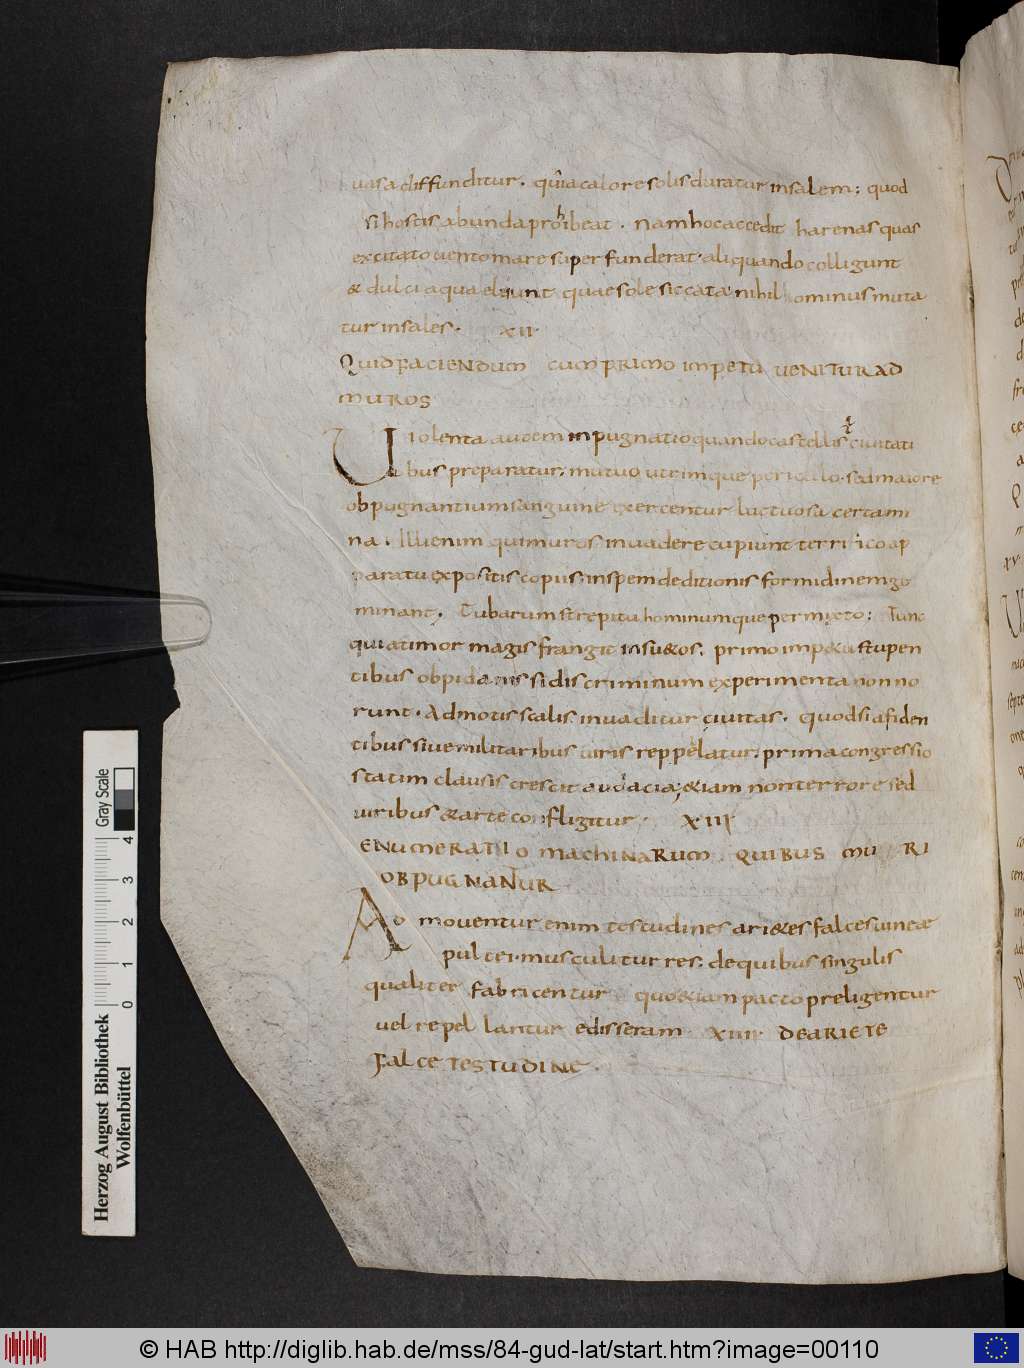 uasa diffunditur. quia calore solis duratur insalem; quod
si hostis abunda prohibeat. Nam hoc accedit harenas quas
excitato uento mare super funderat. aliquando colligunt
& dulci aqua eluunt quae sole siccata nihilhominus muta
tur insales. XII
QUID FACIENDUM CUM PRIMO IMPETU UENITUR AD
MUROS
Uiolenta autem inpugnatio quando castellis uł ciuitati
bus preparatur; mutuo utrimque periculo. sed maiore
obpugnantium sanguine exercentur luctuosa certami
na. Illi enim qui muros inuadere cupiunt terrifico ap
paratu expositis copiis; inspem deditionis formidinem ge
minant. Tubarum strepitu hominumque permixto; Tunc
quia timor magis frangit insu&os; primo imp&u stupen
tibus obpidanis si discriminum experimenta non no
runt. Admotis scalis. inuaditur ciuitas. quodsi afiden
tibus siue militaribus uiris reppelatur; prima congressio
statim clausis crescit audacia; &iam non terrore sed
uiribus & arte confligitur. XIII
ENUMERATIO MACHINARUM QUIBUS MURI
OBPUGNANUR
Ad mouentur enim testudines ari&es falces uineae
pultei. musculi turres; de quibus singulis
qualiter fabricentur quo &iam pacto preligentur
uel repellantur edisseram XIIII DE ARIETE
FALCE TESTUDINE.
Herzog August Bibliothek
Wolfenbüttel
Gray Scale
0 1 2 3 4
© HAB http://diglib.hab.de/mss/84-gud-lat/start.htm?image=00110